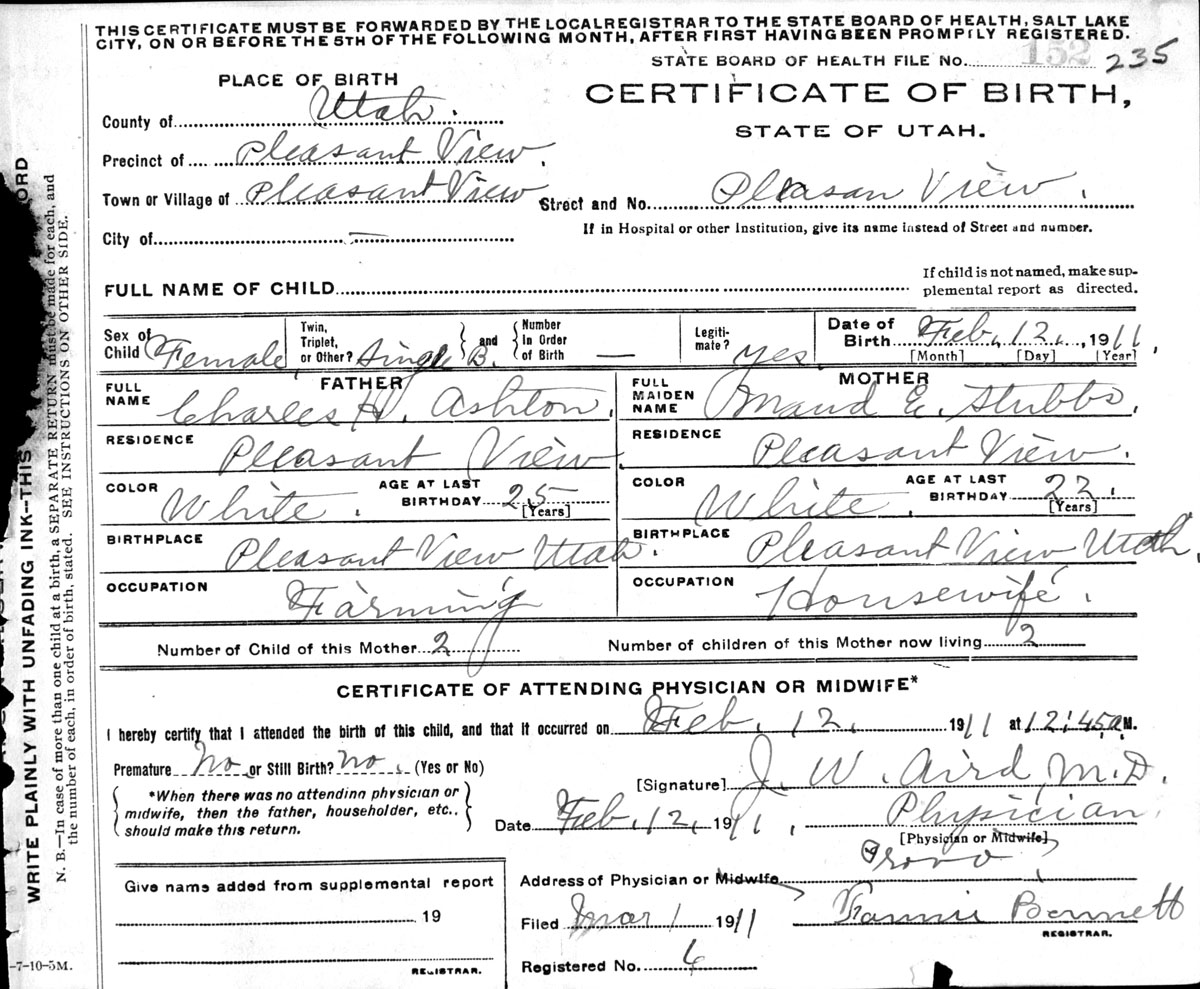 THIS CERTIFICATE MUST BE FORWARDED BY THE LOCAL REGISTRAR TO THE STATE BOARD OF HEALTH, SALT LAKE
CITY, ON OR BEFORE THE 5TH OF THE FOLLOWING MONTH, AFTER FIRST HAVING BEEN PROMPTLY REGISTERED.
STATE BOARD OF HEALTH FILE No. 152 235
PLACE OF BIRTH
CERTIFICATE OF BIRTH,
STATE OF UTAH.
County of Utah.
Precinct of Pleasant View.
Town or Village of Pleasant View
Street and No. Pleasan View.
City of
If in Hospital or other Institution, give its name instead of Street and number.
FULL NAME OF CHILD
If child is not named, make sup-
plemental report as directed.
Sex of Child Female
Twin, Triplet, or Other? Single B. and Number In Order of Birth —
Legiti-mate? Yes
Date of Birth Feb. 12., 1911.
[Month] [Day] [Year]
FATHER
FULL NAME Charles H. Ashton.
RESIDENCE Pleasant View
COLOR White. AGE AT LAST BIRTHDAY 25 [Years]
BIRTHPLACE Pleasant View Utah.
OCCUPATION Farming
MOTHER
FULL MAIDEN NAME Maud E. Stubbs.
RESIDENCE Pleasant View.
COLOR White. AGE AT LAST BIRTHDAY 22. [Years]
BIRTHPLACE Pleasant View Utah.
OCCUPATION Housewife.
Number of Child of this Mother 2
Number of children of this Mother now living 2
CERTIFICATE OF ATTENDING PHYSICIAN OR MIDWIFE*
I hereby certify that I attended the birth of this child, and that it occurred on Feb. 12, 1911 at 12:45 a. M.
Premature No. or Still Birth? No. (Yes or No)
[Signature] J. W. Aird, M.D.
*When there was no attending physician or
midwife, then the father, householder, etc.,
should make this return.
Date Feb. 12, 1911. Physician
[Physician or Midwife]
Address of Physician or Midwife Provo
Filed Mar 1 1911 Fannie Bennett
REGISTRAR.
Registered No. 6
Give name added from supplemental report
19
REGISTRAR.
WRITE PLAINLY WITH UNFADING INK--THIS
ORD
N. B.—In case of more than one child at a birth, a SEPARATE RETURN must be made for each, and
the number of each, in order of birth, stated. SEE INSTRUCTIONS ON OTHER SIDE.
-7-10-5M.